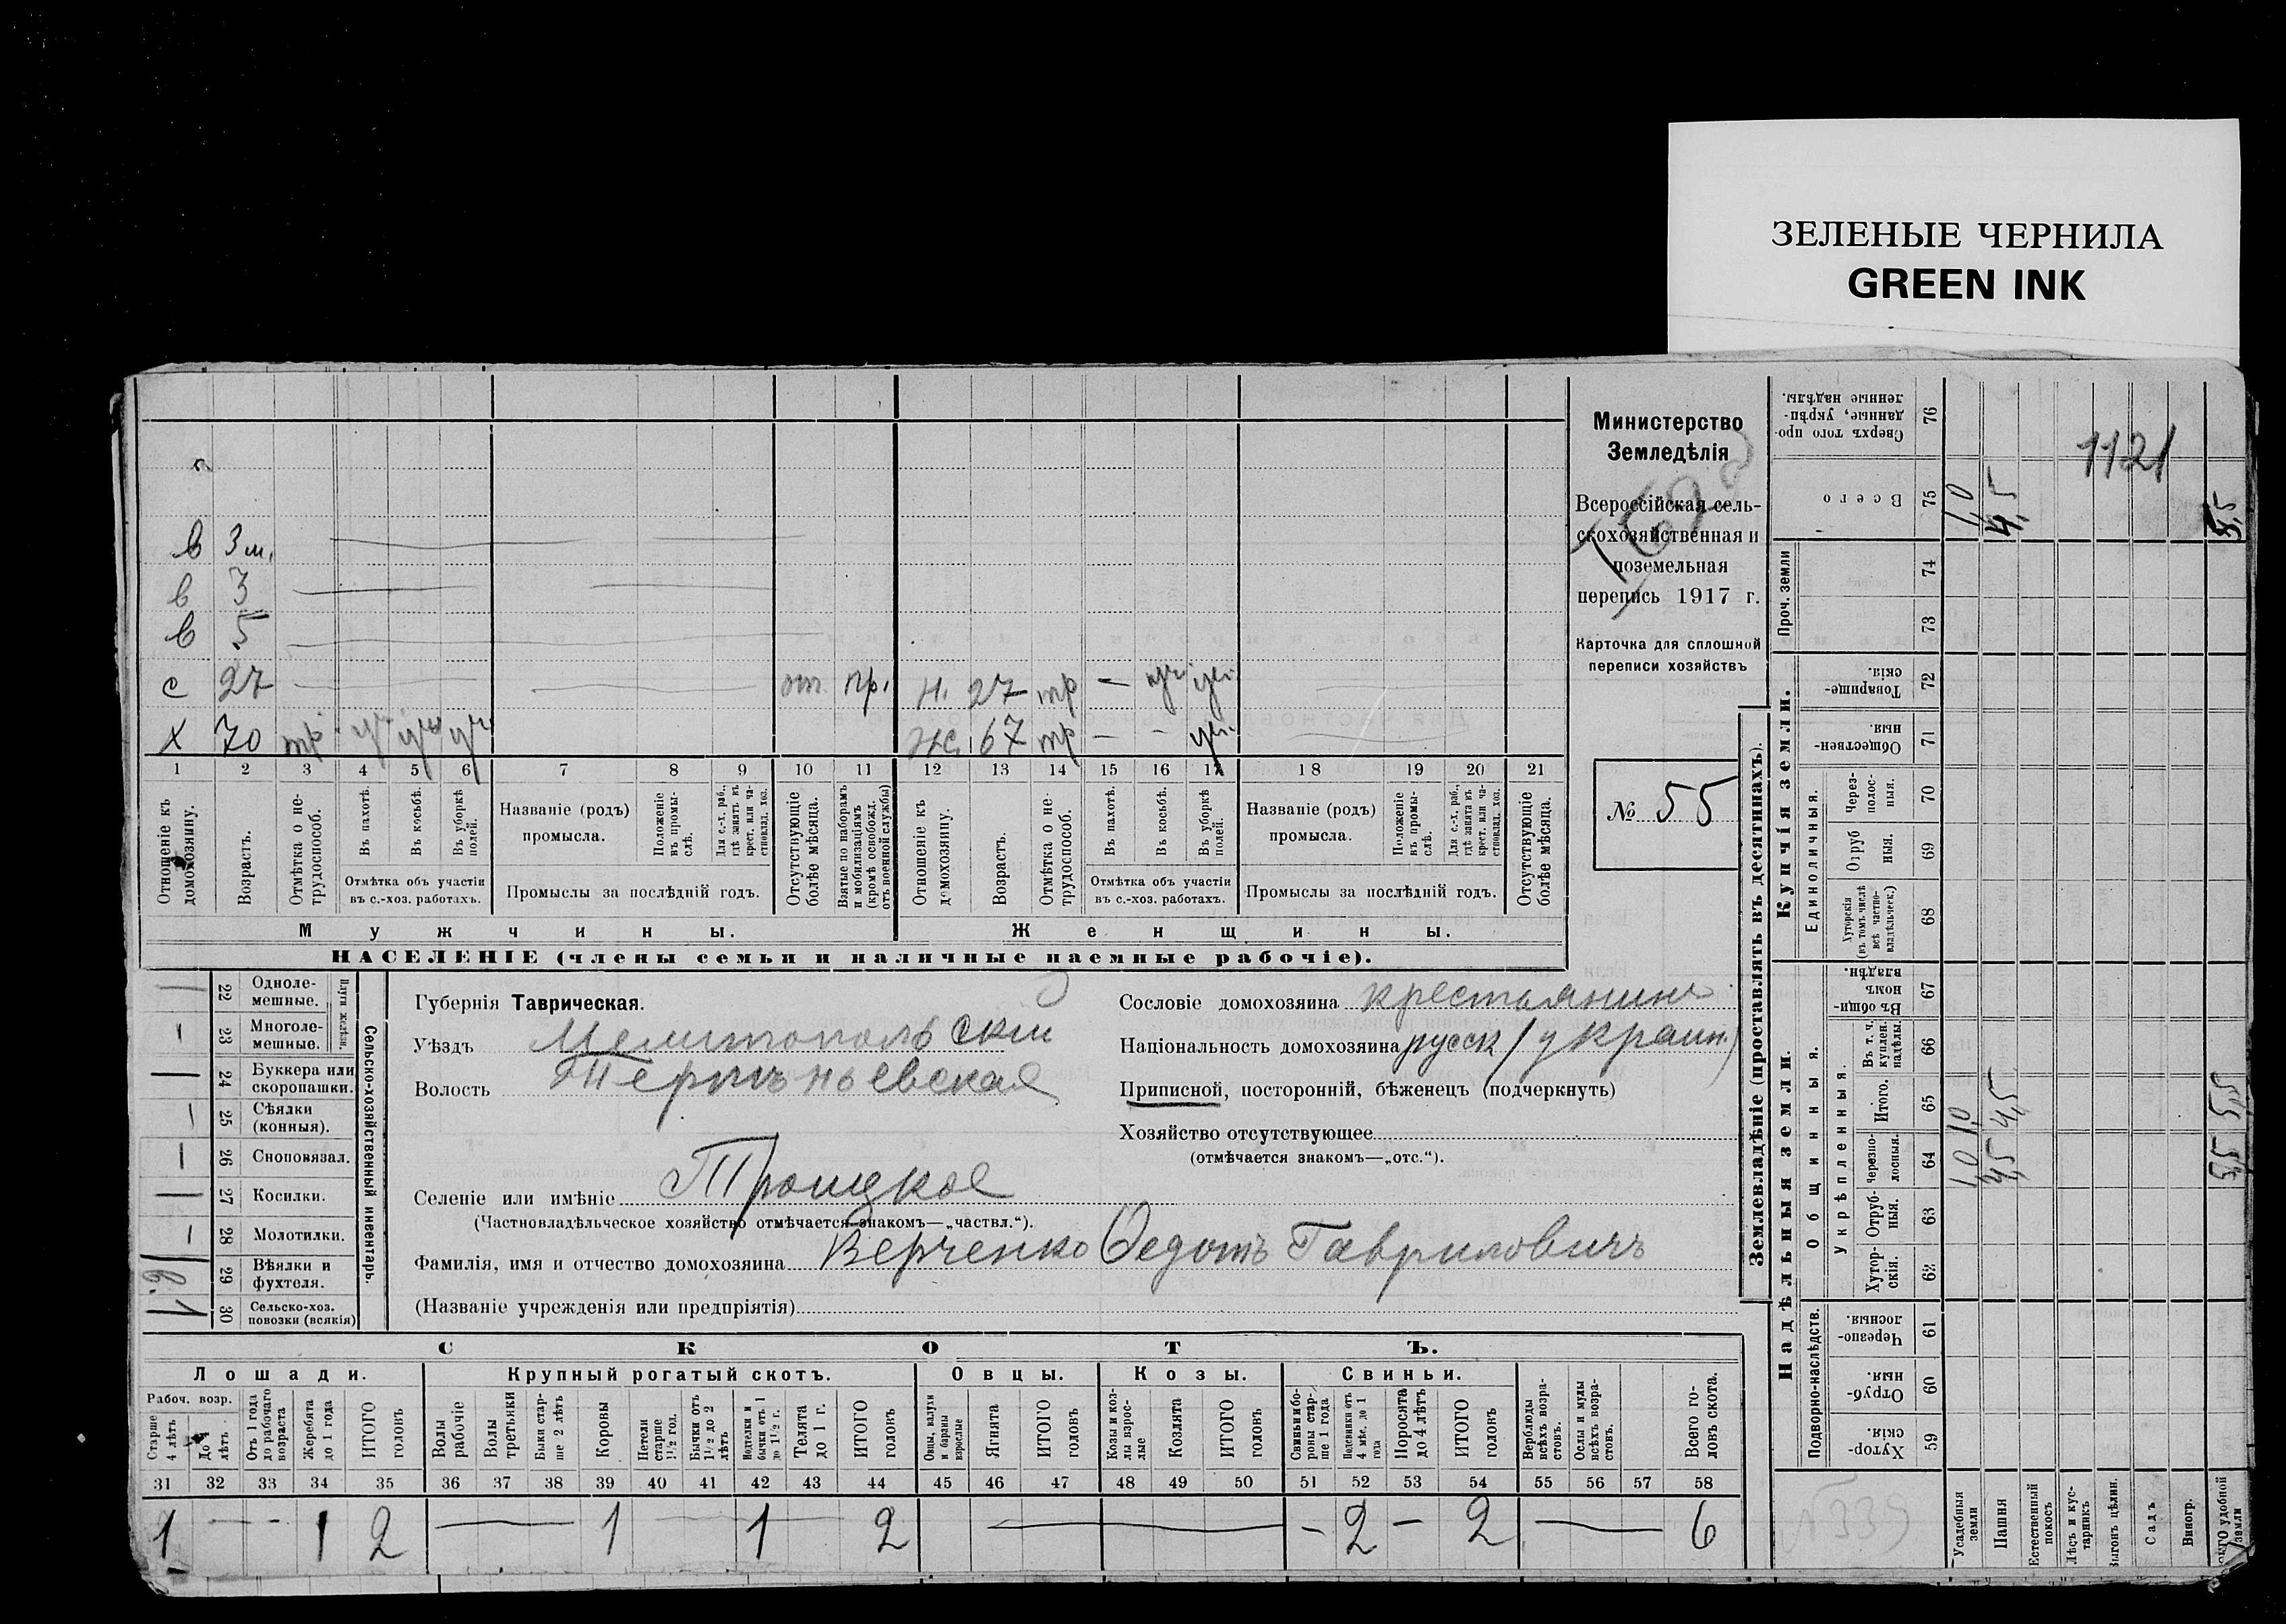 ЗЕЛЕНЫЕ ЧЕРНИЛА
GREEN INK
Министерство
Земледѣлія
Всероссійская сель-
скохозяйственная и
поземельная
перепись 1917 г.
Карточка для сплошной
переписи хозяйствъ
№ 55
1121
в 3 м.
в 3
в 5
с 27 от. пр. н. 27 тр — уч уч
х 70 тр. уч уч уч же 67 тр — - уч.
1 2 3 4 5 6 7 8 9 10 11 12 13 14 15 16 17 18 19 20 21
Отношеніе къ домохозяину.
Возрастъ.
Отмѣтка о не-трудоспособ.
Въ пахотѣ.
Въ косьбѣ.
Въ уборкѣ полей.
Отмѣтка объ участіи въ с.-хоз. работахъ.
Названіе (родъ) промысла.
Положеніе въ промы-слѣ.
Для с.-х. раб., гдѣ занятъ въ крест. или ча-стновлад. хоз.
Промыслы за послѣдній годъ.
Отсутствующіе болѣе мѣсяца.
Взятые по наборамъ и мобилизаціямъ (кромѣ освобожд. отъ военной службы)
Отношеніе къ домохозяину.
Возрастъ.
Отмѣтка о не-трудоспособ.
Въ пахотѣ.
Въ косьбѣ.
Въ уборкѣ полей.
Отмѣтка объ участіи въ с.-хоз. работахъ.
Названіе (родъ) промысла.
Положеніе въ промы-слѣ.
Для с.-х. раб., гдѣ занятъ въ крест. или ча-стновлад. хоз.
Промыслы за послѣдній годъ.
Отсутствующіе болѣе мѣсяца.
Мужчины. Женщины.
НАСЕЛЕНІЕ (члены семьи и наличные наемные рабочіе).
22 Одноле-мешные.
23 Многоле-мешные.
Плуги желѣзн.
24 Буккера или скоропашки.
25 Сѣялки (конныя).
26 Сноповязал.
27 Косилки.
28 Молотилки.
29 Вѣялки и фухтеля.
30 Сельско-хоз. повозки (всякія)
Сельско-хозяйственный инвентарь.
Губернія Таврическая.
Уѣздъ Мелитопольскій
Волость Терпѣньевская
Селеніе или имѣніе Троицкое
(Частновладѣльческое хозяйство отмѣчается знакомъ—„частвл.“).
Фамилія, имя и отчество домохозяина Верченко Ѳедотъ Гавриловичъ
(Названіе учрежденія или предпріятія)
Сословіе домохозяина крестьянинъ
Національность домохозяина русск (украин.)
Приписной, посторонній, бѣженецъ (подчеркнуть)
Хозяйство отсутствующее
(отмѣчается знакомъ—„отс.“).
СКОТЪ.
Лошади. Крупный рогатый скотъ. Овцы. Козы. Свиньи.
Рабоч. возр.
Старше 4 лѣтъ
До 4 лѣтъ
Отъ 1 года до рабочаго возраста
Жеребята до 1 года
ИТОГО головъ
Волы рабочіе
Волы третьяки
Быки стар-ше 2 лѣтъ
Коровы
Нетели старше 1½ год.
Бычки отъ 1½ до 2 лѣтъ
Подтелки и бычки отъ 1 до 1½ г.
Телята до 1 г.
ИТОГО головъ
Овцы, валухи и бараны взрослые
Ягнята
ИТОГО головъ
Козы и коз-лы взрос-лые
Козлята
ИТОГО головъ
Свиньи и бо-ровы стар-ше 1 года
Подсвинки отъ 4 мѣс. до 1 года
Поросята до 4 лѣтъ
ИТОГО головъ
Верблюды всѣхъ возра-стовъ.
Ослы и мулы всѣхъ возра-стовъ.
Всего го-ловъ скота.
31 32 33 34 35 36 37 38 39 40 41 42 43 44 45 46 47 48 49 50 51 52 53 54 55 56 57 58
1 — - 1 2 — 1 — 1 2 — - 2 — 2 — 6
Землевладѣніе (проставлять въ десятинахъ).
Надѣльныя земли. Купчія земли. Проч. земли
Подворно-наслѣдств.
Общинныя.
Укрѣпленныя.
Единоличныя.
Хутор-скія. 59
Отруб-ныя. 60
Черезпо-лосныя. 61
Хутор-скія. 62
Отруб-ныя. 63
Черезпо-лосныя. 64
Итого. 65
Въ т. ч. куплен. надѣлы. 66
Въ общин-номъ владѣн. 67
Хуторскія (въ томъ числѣ всѣ частно-владѣльческ.) 68
Отруб ныя. 69
Через-полос-ныя. 70
Обществен-ныя. 71
Товарище-скія. 72
73
74
Всего 75
Сверхъ того про-данные, укрѣп-ленные надѣлы. 76
Усадебныя земли 1,0 1,0 1,0
Пашня 4,5 4,5 4,5
Естественный покосъ
Лѣсъ и кус-тарникъ
Выгонъ цѣлин.
Садъ
Виногр.
удобной земли 5,5 5,5 5,5